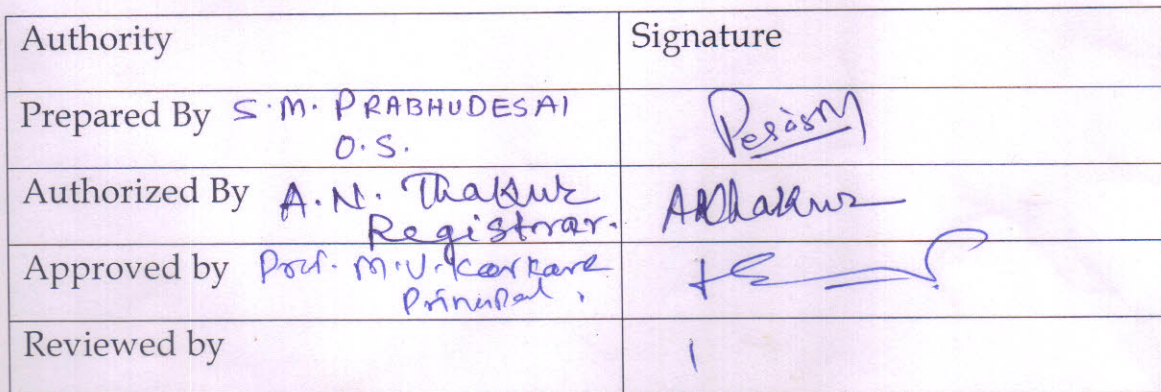 Authority Signature
Prepared By S.M. PRABHUDESAI
O.S.
Authorized By A.N. Thakur AThakur
Registrar.
Approved by Prof. M.V. Karkare
Principal,
Reviewed by